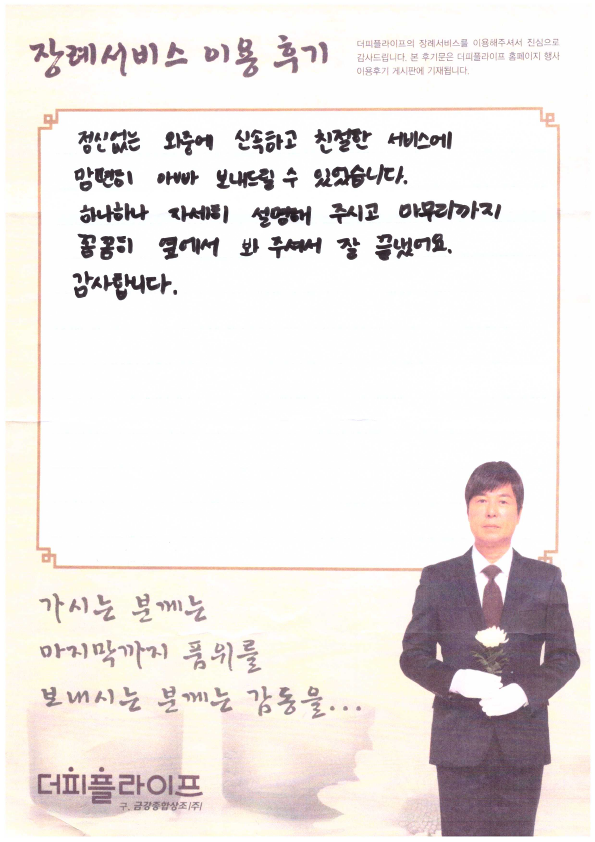 장례서비스 이용 후기
더피플라이프의 장례서비스를 이용해주셔서 진심으로
감사드립니다. 본 후기문은 더피플라이프 홈페이지 행사
이용후기 게시판에 기재됩니다.
정신없는 와중에 신속하고 친절한 서비스에
맘편히 아빠 보내드릴 수 있었습니다.
하나하나 자세히 설명해 주시고 마무리까지
꼼꼼히 옆에서 봐 주셔서 잘 끝냈어요.
감사합니다.
가시는 분께는
마지막까지 품위를
보내시는 분께는 감동을...
더피플라이프
구. 금강종합상조(주)